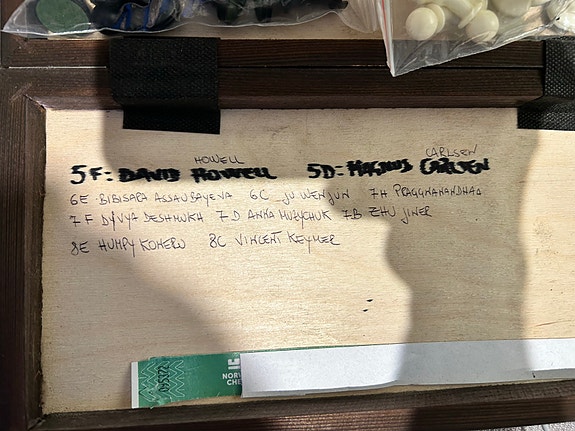 HOWELL CARLSEN
5F: DAVID HOWELL 5D: MAGNUS CARLSEN
6E BIBISARA ASSAUBAYEVA 6C JU WENJUN 7H PRAGGNANANDHAA
7F DIVYA DESHMUKH 7D ANNA MUZYCHUK 7B ZHU JINER
8E HUMPY KONERU 8C VINCENT KEYMER
NOR
CHE